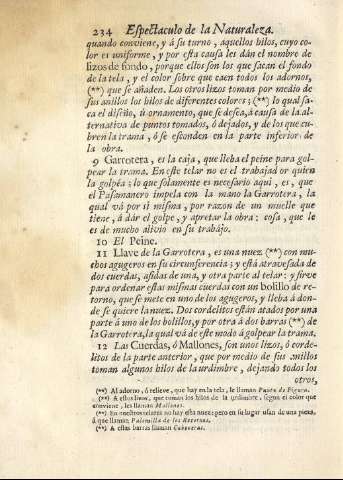 234 Espectaculo de la Naturaleza.
quando conviene, y á su turno, aquellos hilos, cuyo co-
lor es uniforme, y por esta causa les dán el nombre de
lizos de fondo, porque ellos son los que sacan el fondo
de la tela, y el color sobre que caen todos los adornos,
(**) que se añaden. Los otros lizos toman por medio de
sus anillos los hilos de diferentes colores; (**) lo qual sa-
ca el diseño, ú ornamento, que se desea, á causa de la al-
ternativa de puntos tomados, ó dejados, y de los que cu-
bren la trama, ó se esconden en la parte inferior de
la obra.
9 Garrotera, es la caja, que lleba el peine para gol-
pear la trama. En este telar no es el trabajador quien
la golpéa; lo que solamente es necesario aqui, es, que
el Pasamanero impela con la mano la Garrotera, la
qual vá por sí misma, por razon de un muelle que
tiene, á dár el golpe, y apretar la obra: cosa, que le
es de mucho alivio en su trabájo.
10 El Peine.
11 Llave de la Garrotera, es una nuez (**) con mu-
chos agugeros en su circunferencia; y está atravesada de
dos cuerdas, asidas de una, y otra parte al telar: y sirve
para ordenar estas mismas cuerdas con un bolillo de re-
torno, que se mete en uno de los agugeros, y lleba á don-
de se quiere la nuez. Dos cordelitos están atados por una
parte á uno de los bolillos, y por otra á dos barras (**) de
la Garrotera, la qual vá de este modo á golpear la trama.
12 Las Cuerdas, ó Mallones, son unos lizos, ó corde-
litos de la parte anterior, que por medio de sus anillos
toman algunos hilos de la urdimbre, dejando todos los
otros,
(**) Al adorno, ó relieve, que hay en la tela, le llaman Punto de Figura.
(**) A estos lizos, que toman los hilos de la urdimbre, segun el color que
conviene, les llaman Mallones.
(**) En nuestros telares no hay esta nuez; pero en su lugar usan de una pieza,
á que llaman Palomilla de los
(**) A estas barras llaman